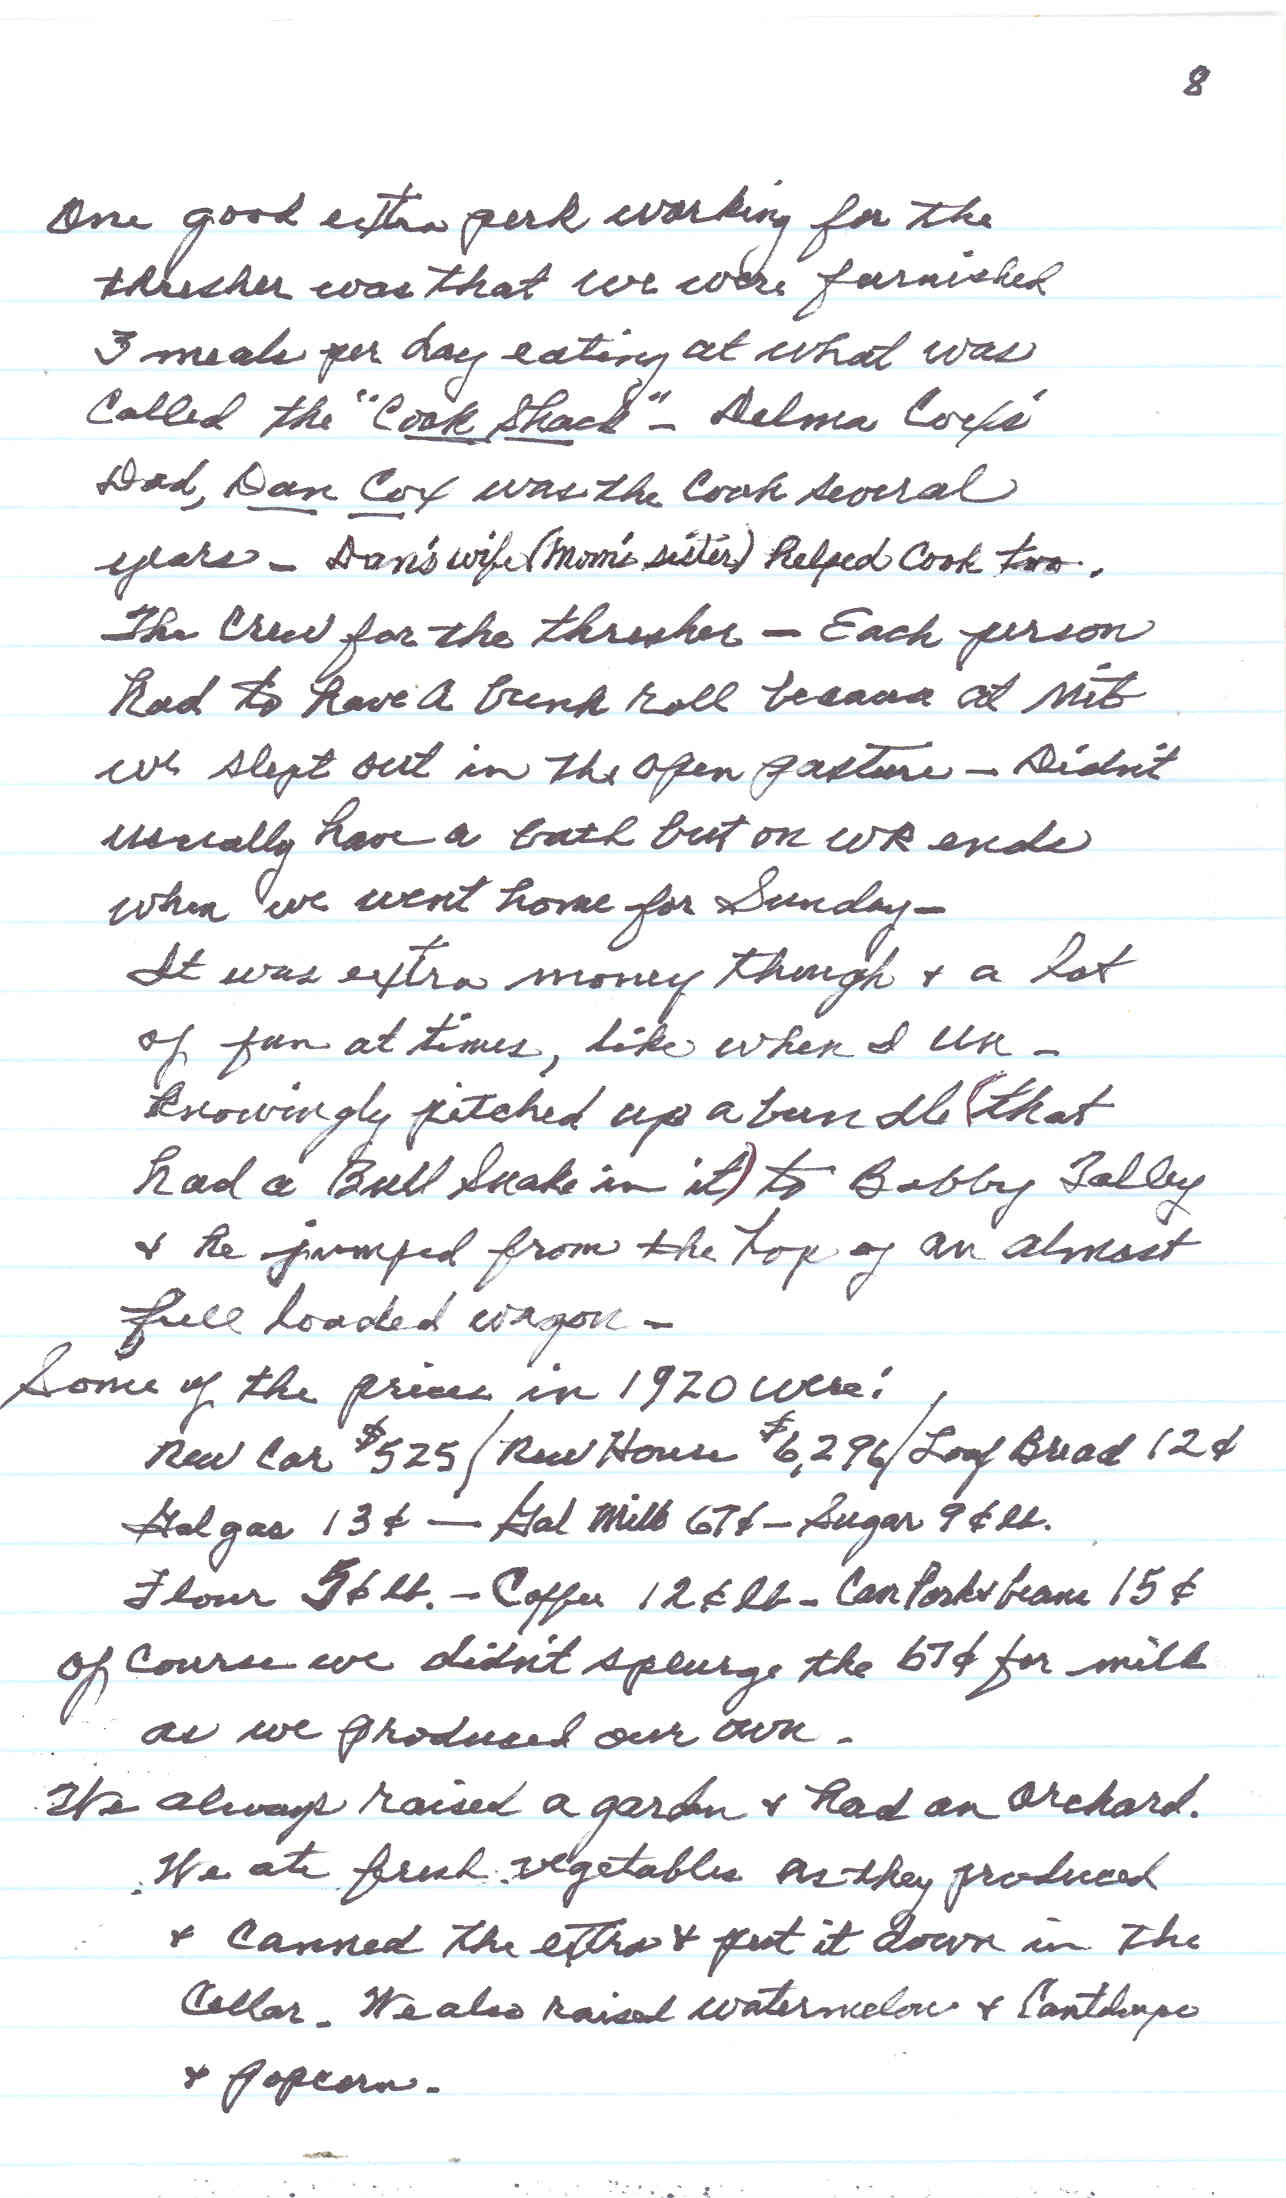 8
One good extra perk working for the
thresher was that we were furnished
3 meals per day eating at what was
Called the "Cook Shack" - Delma Cox's
Dad, Dan Cox was the Cook several
years - Dan's wife (Mom's sister) helped Cook two.
The Crew for the thresher - Each person
had to have a bunk roll because at nite
we slept out in the open pasture - Didn't
usually have a bath but on wk ends
when we went home for Sunday -
It was extra money though & a lot
of fun at times, like when I un -
knowingly pitched up a bundle (that
had a Bull Snake in it) to Bobby Talley
& he jumped from the top of an almost
full loaded wagon -
Some of the prices in 1920 were:
New Car $525 / New House $6,296 / Loaf Bread 12¢
Gal gas 13¢ - Gal Milk 67¢ - Sugar 9¢ lb.
Flour 5¢ lb. - Coffee 12¢ lb - Can Pork & beans 15¢
Of Course we didn't splurge the 67¢ for milk
as we produced our own -
We always raised a garden & had an Orchard.
We ate fresh vegetables as they produced
& canned the extra & put it down in the
Cellar - We also raised watermelon & Cantelope
& popcorn -